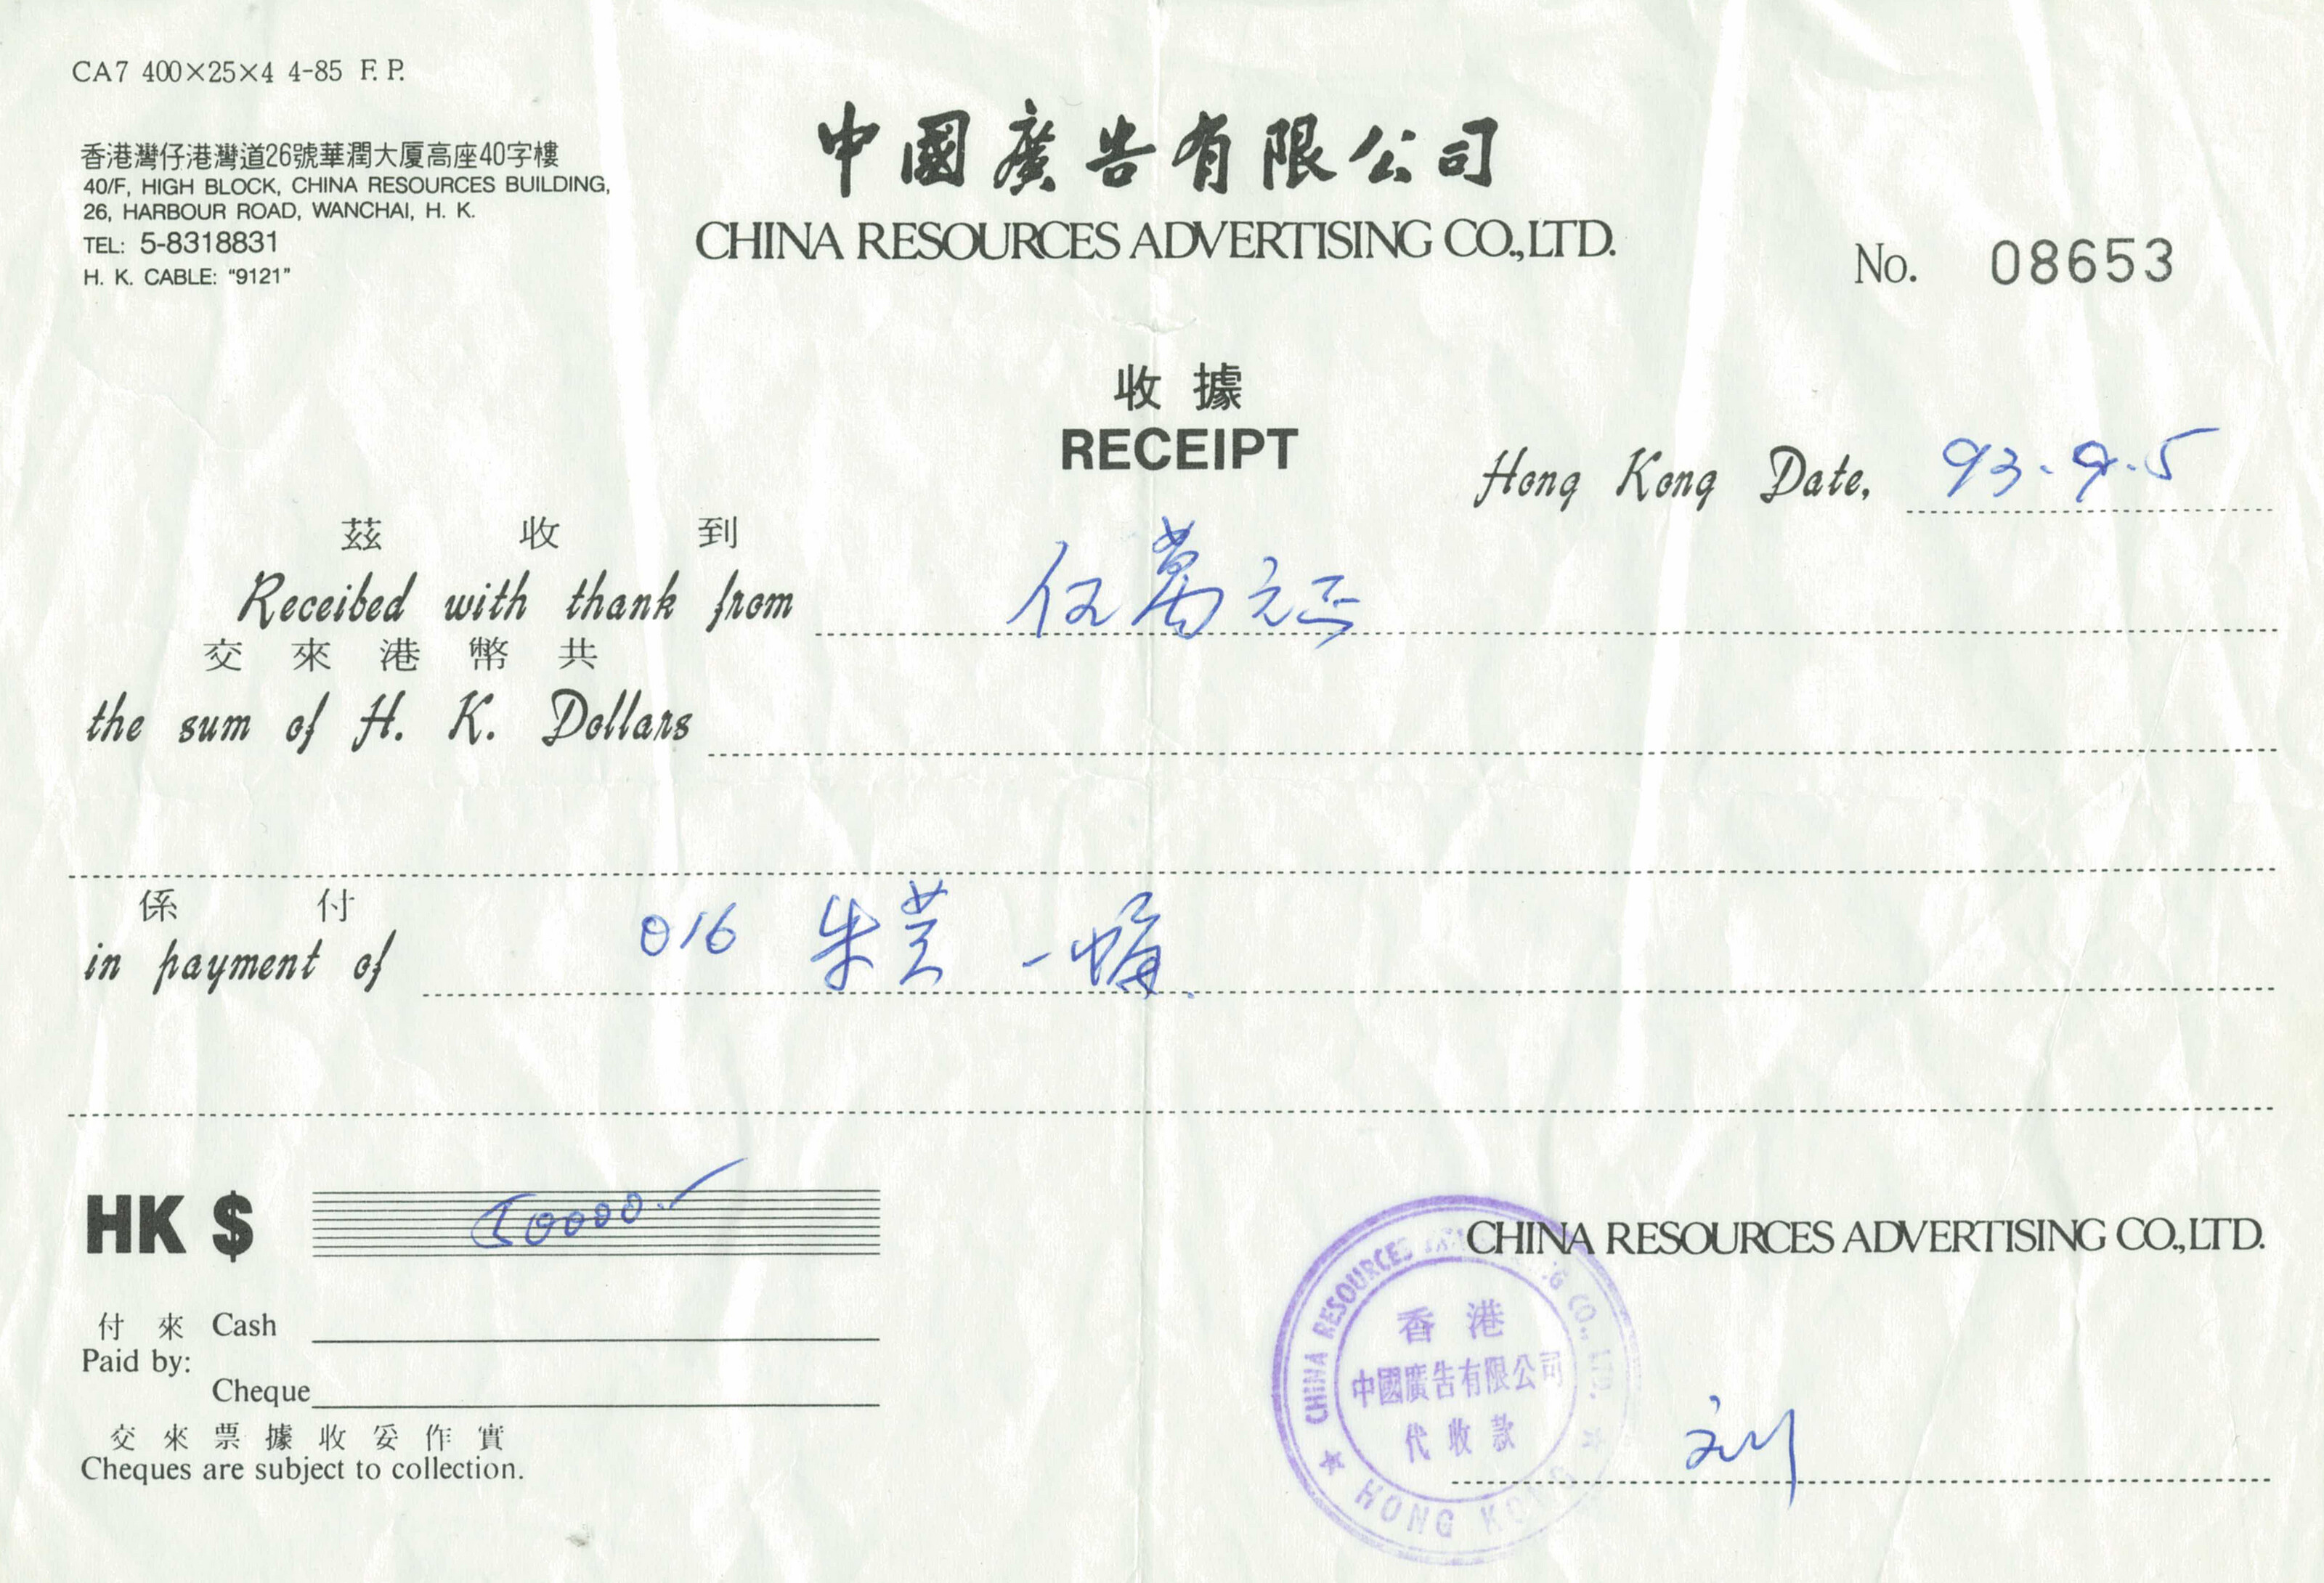 CA7 400×25×4 4-85 F. P.
香港灣仔港灣道26號華潤大厦高座40字樓
40/F, HIGH BLOCK, CHINA RESOURCES BUILDING,
26, HARBOUR ROAD, WANCHAI, H. K.
TEL: 5-8318831
H. K. CABLE: “9121”
中國廣告有限公司
CHINA RESOURCES ADVERTISING CO.,LTD.
No. 08653
收據
RECEIPT
Hong Kong Date, 93.9.5
茲收到
Receibed with thank from 伍萬元正
交來港幣共
the sum of H. K. Dollars
係付
in payment of 016 朱芸一幅
HK $ 50000.
付來 Cash
Paid by:
Cheque
交來票據收妥作實
Cheques are subject to collection.
CHINA RESOURCES ADVERTISING CO.,LTD.
CHINA RESOURCES ADVERTISING CO., LTD.
香港
中國廣告有限公司
代收款
★ HONG KONG ★
刘